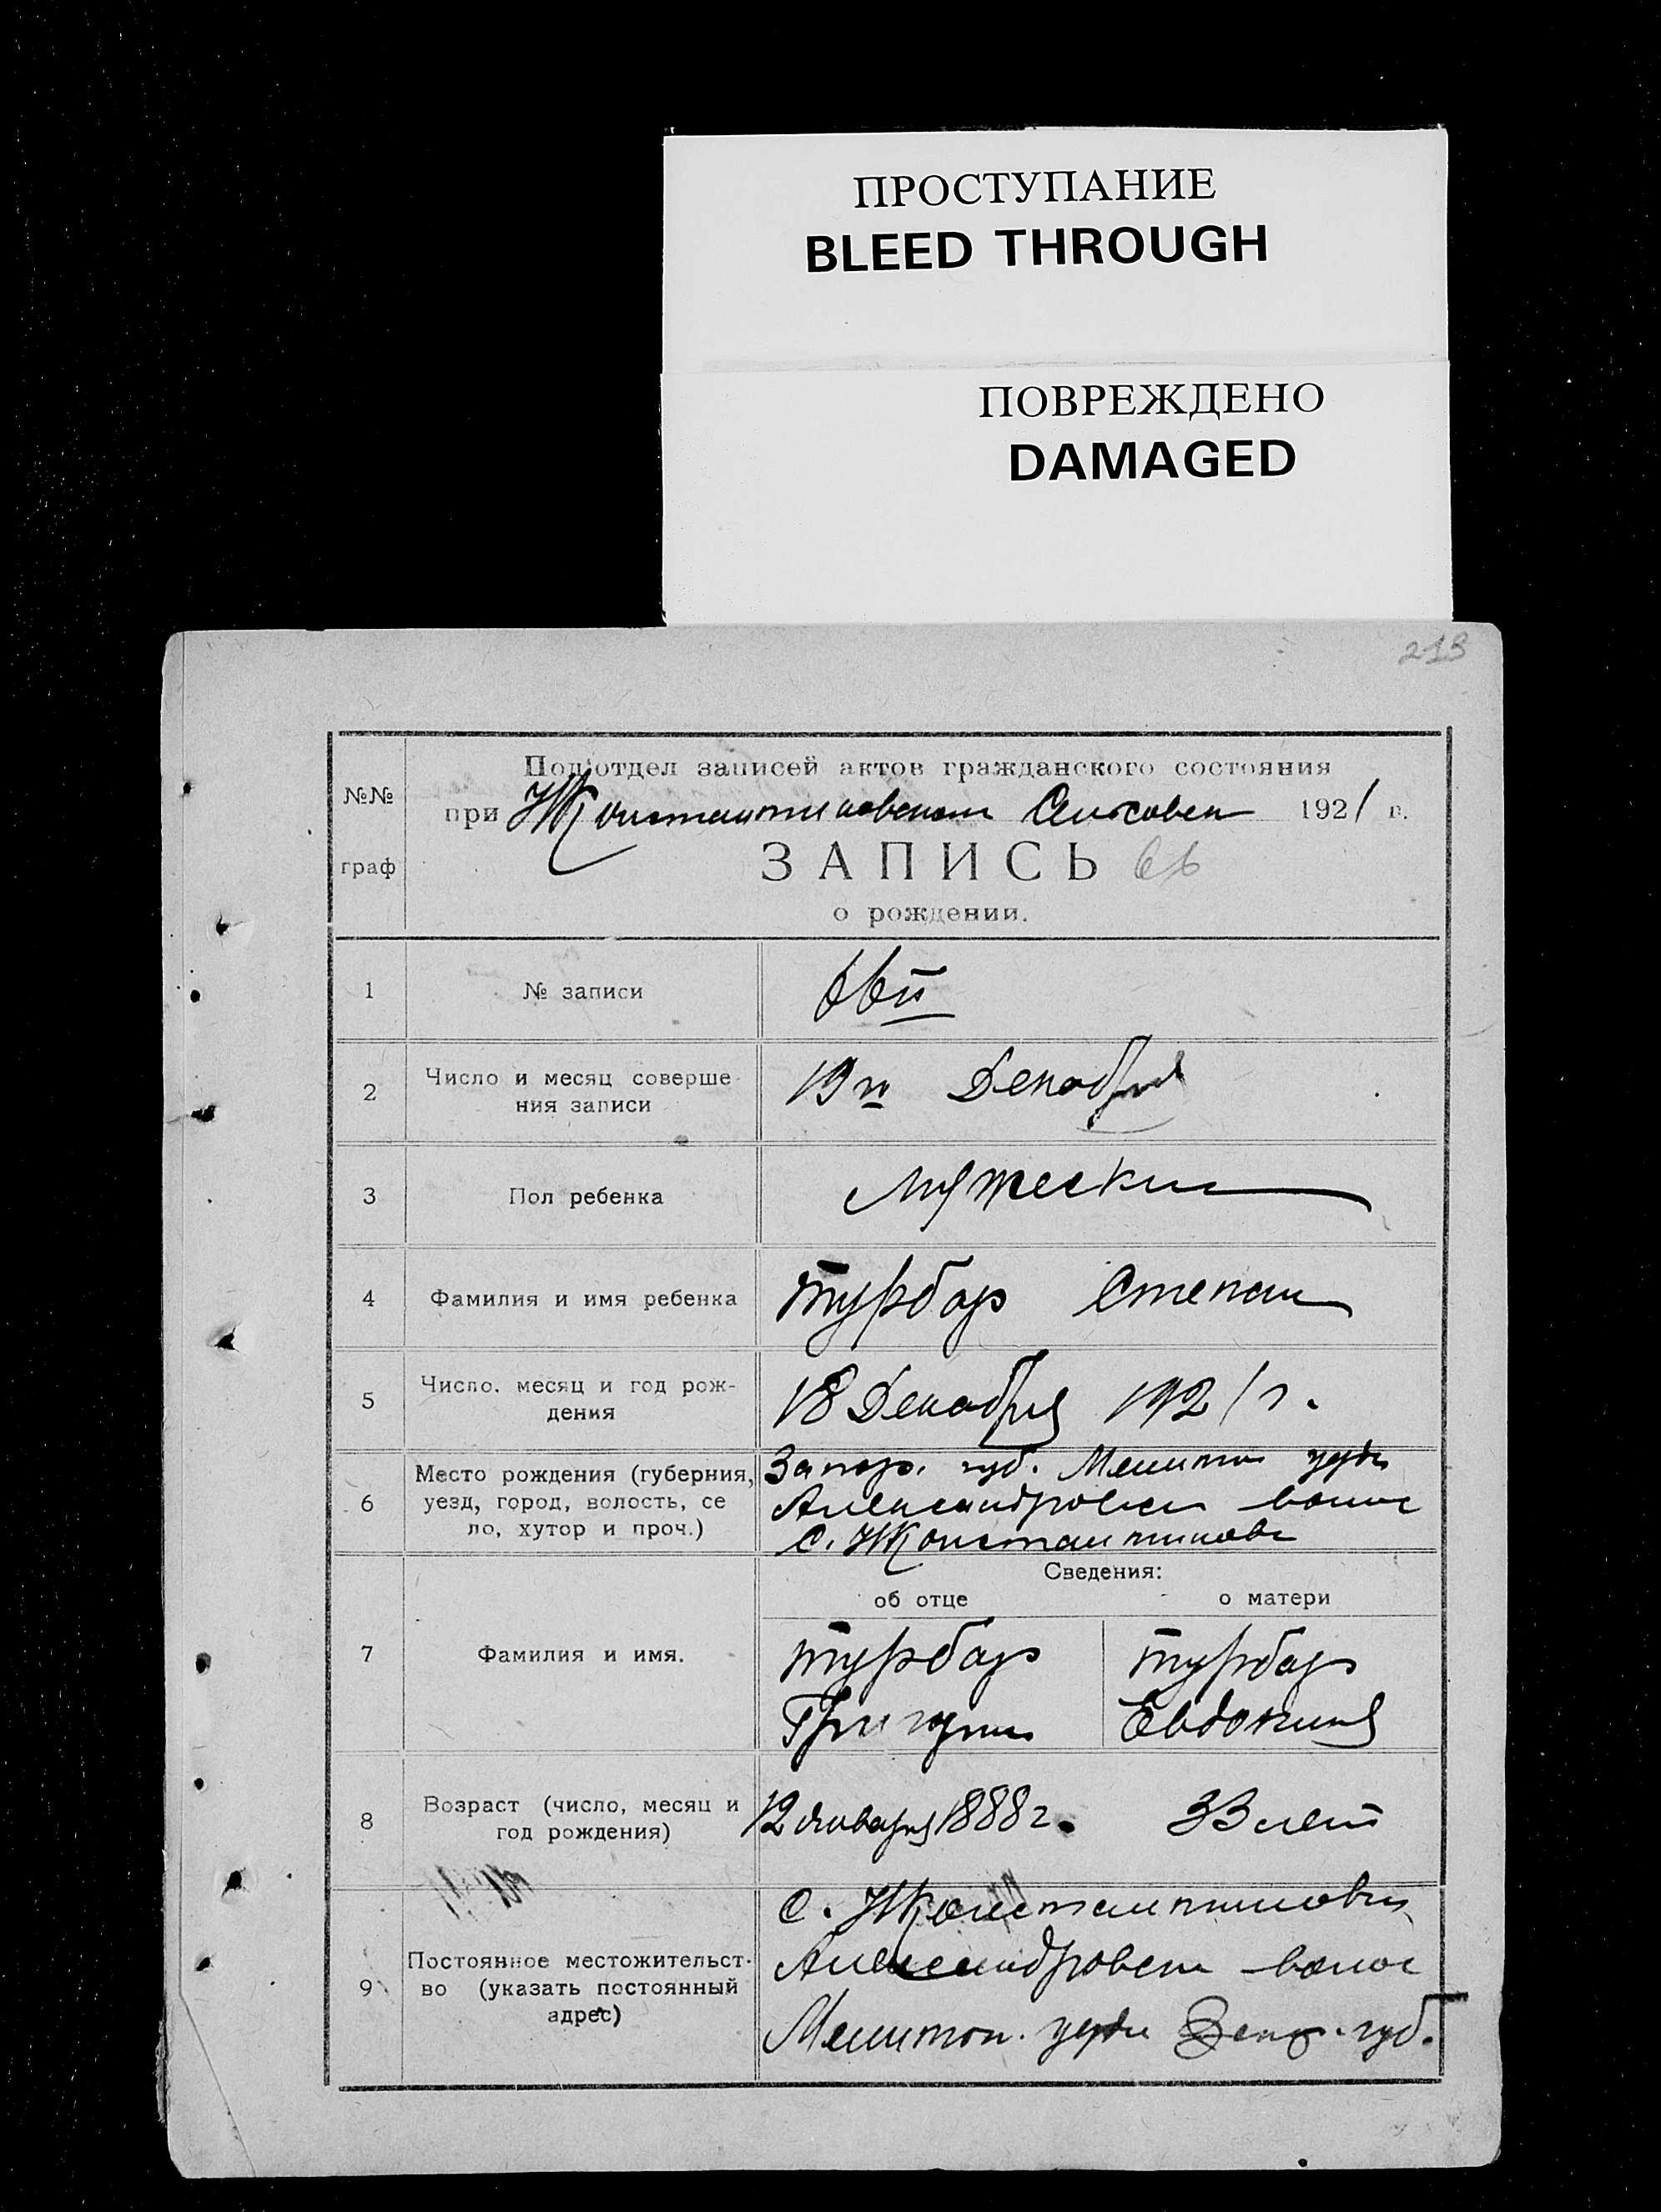 ПРОСТУПАНИЕ
BLEED THROUGH
ПОВРЕЖДЕНО
DAMAGED
213
№№
граф
Подотдел записей актов гражданского состояния
при Константиновском Сельсовет 1921 г.
ЗАПИСЬ 66
о рождении.
1 № записи 66й
2 Число и месяц соверше-
ния записи 19го Декабря
3 Пол ребенка Мужеский
4 Фамилия и имя ребенка Турбар Степан
5 Число, месяц и год рож-
дения 18 Декабря 1921 г.
6 Место рождения (губерния,
уезд, город, волость, се
ло, хутор и проч.)
Запор. губ. Мелитоп уезда
Александровск волос
с. Константиновк
Сведения:
об отце о матери
7 Фамилия и имя.
Турбар Турбар
Григорий Евдокия
8 Возраст (число, месяц и
год рождения)
12 января 1888 г. 33 лет
9 Постоянное местожительст-
во (указать постоянный
адрес)
с. Константиновки
Александровск волос
Мелитоп. уезда Запор. губ.